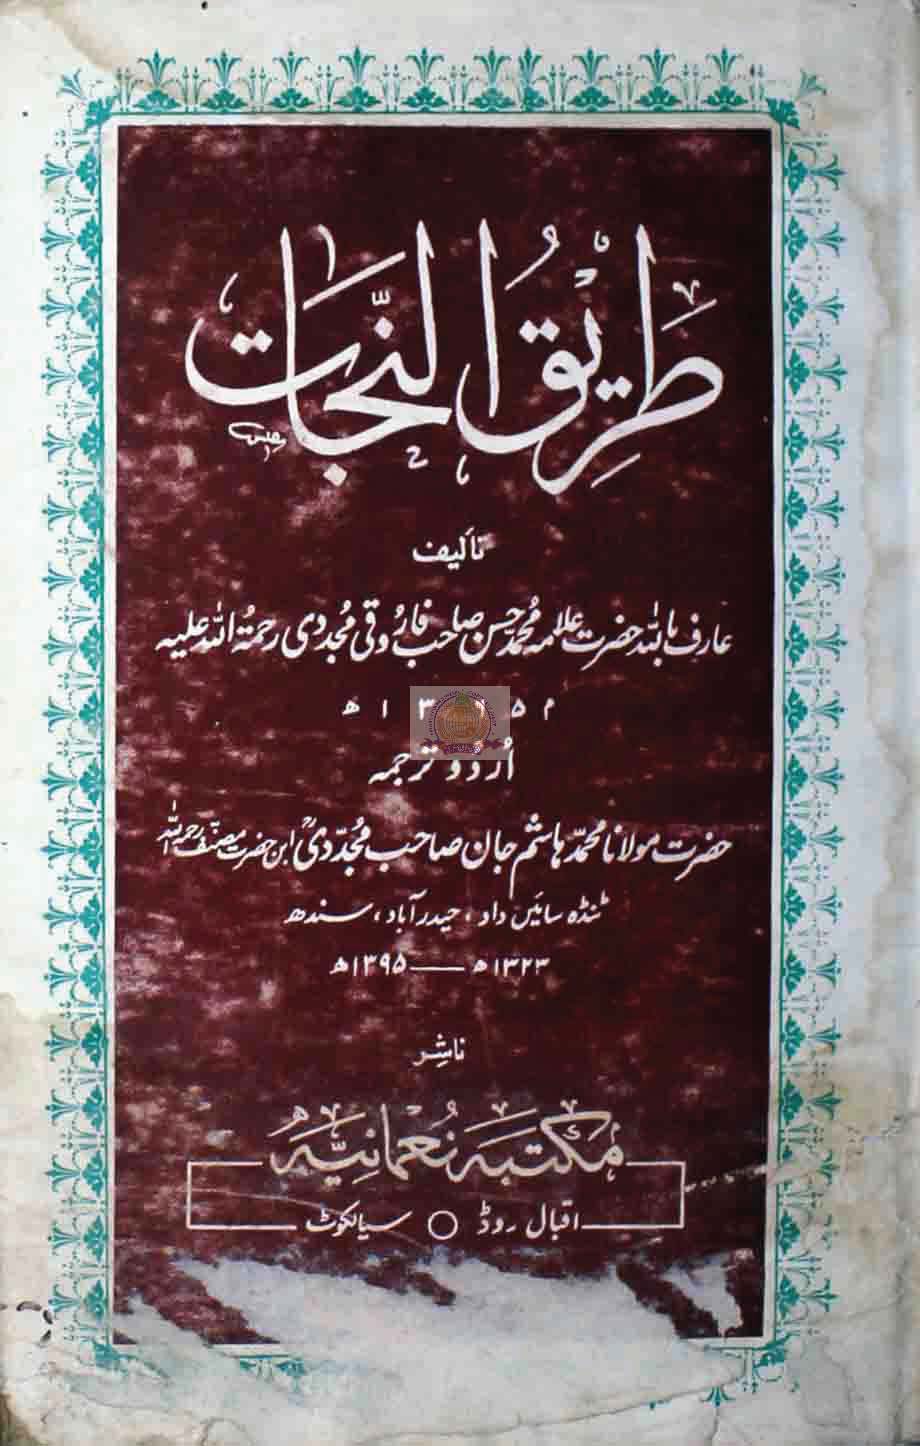 طَرِیْقُ النَّجَات
تالیف
عارف باللہ حضرت علامہ محمد حسن صاحب فاروقی مجددی رحمۃ اللہ علیہ
اُردو ترجمہ
حضرت مولانا محمد ہاشم جان صاحب مجدّدیؒ ابن حضرت مصنف رحمہ اللہ
ٹنڈہ سائیں داد، حیدرآباد، سندھ
۱۳۲۳ھ — ۱۳۹۵ھ
ناشِر
مکتبہ نُعمانیہ
اقبال روڈ ○ سیالکوٹ